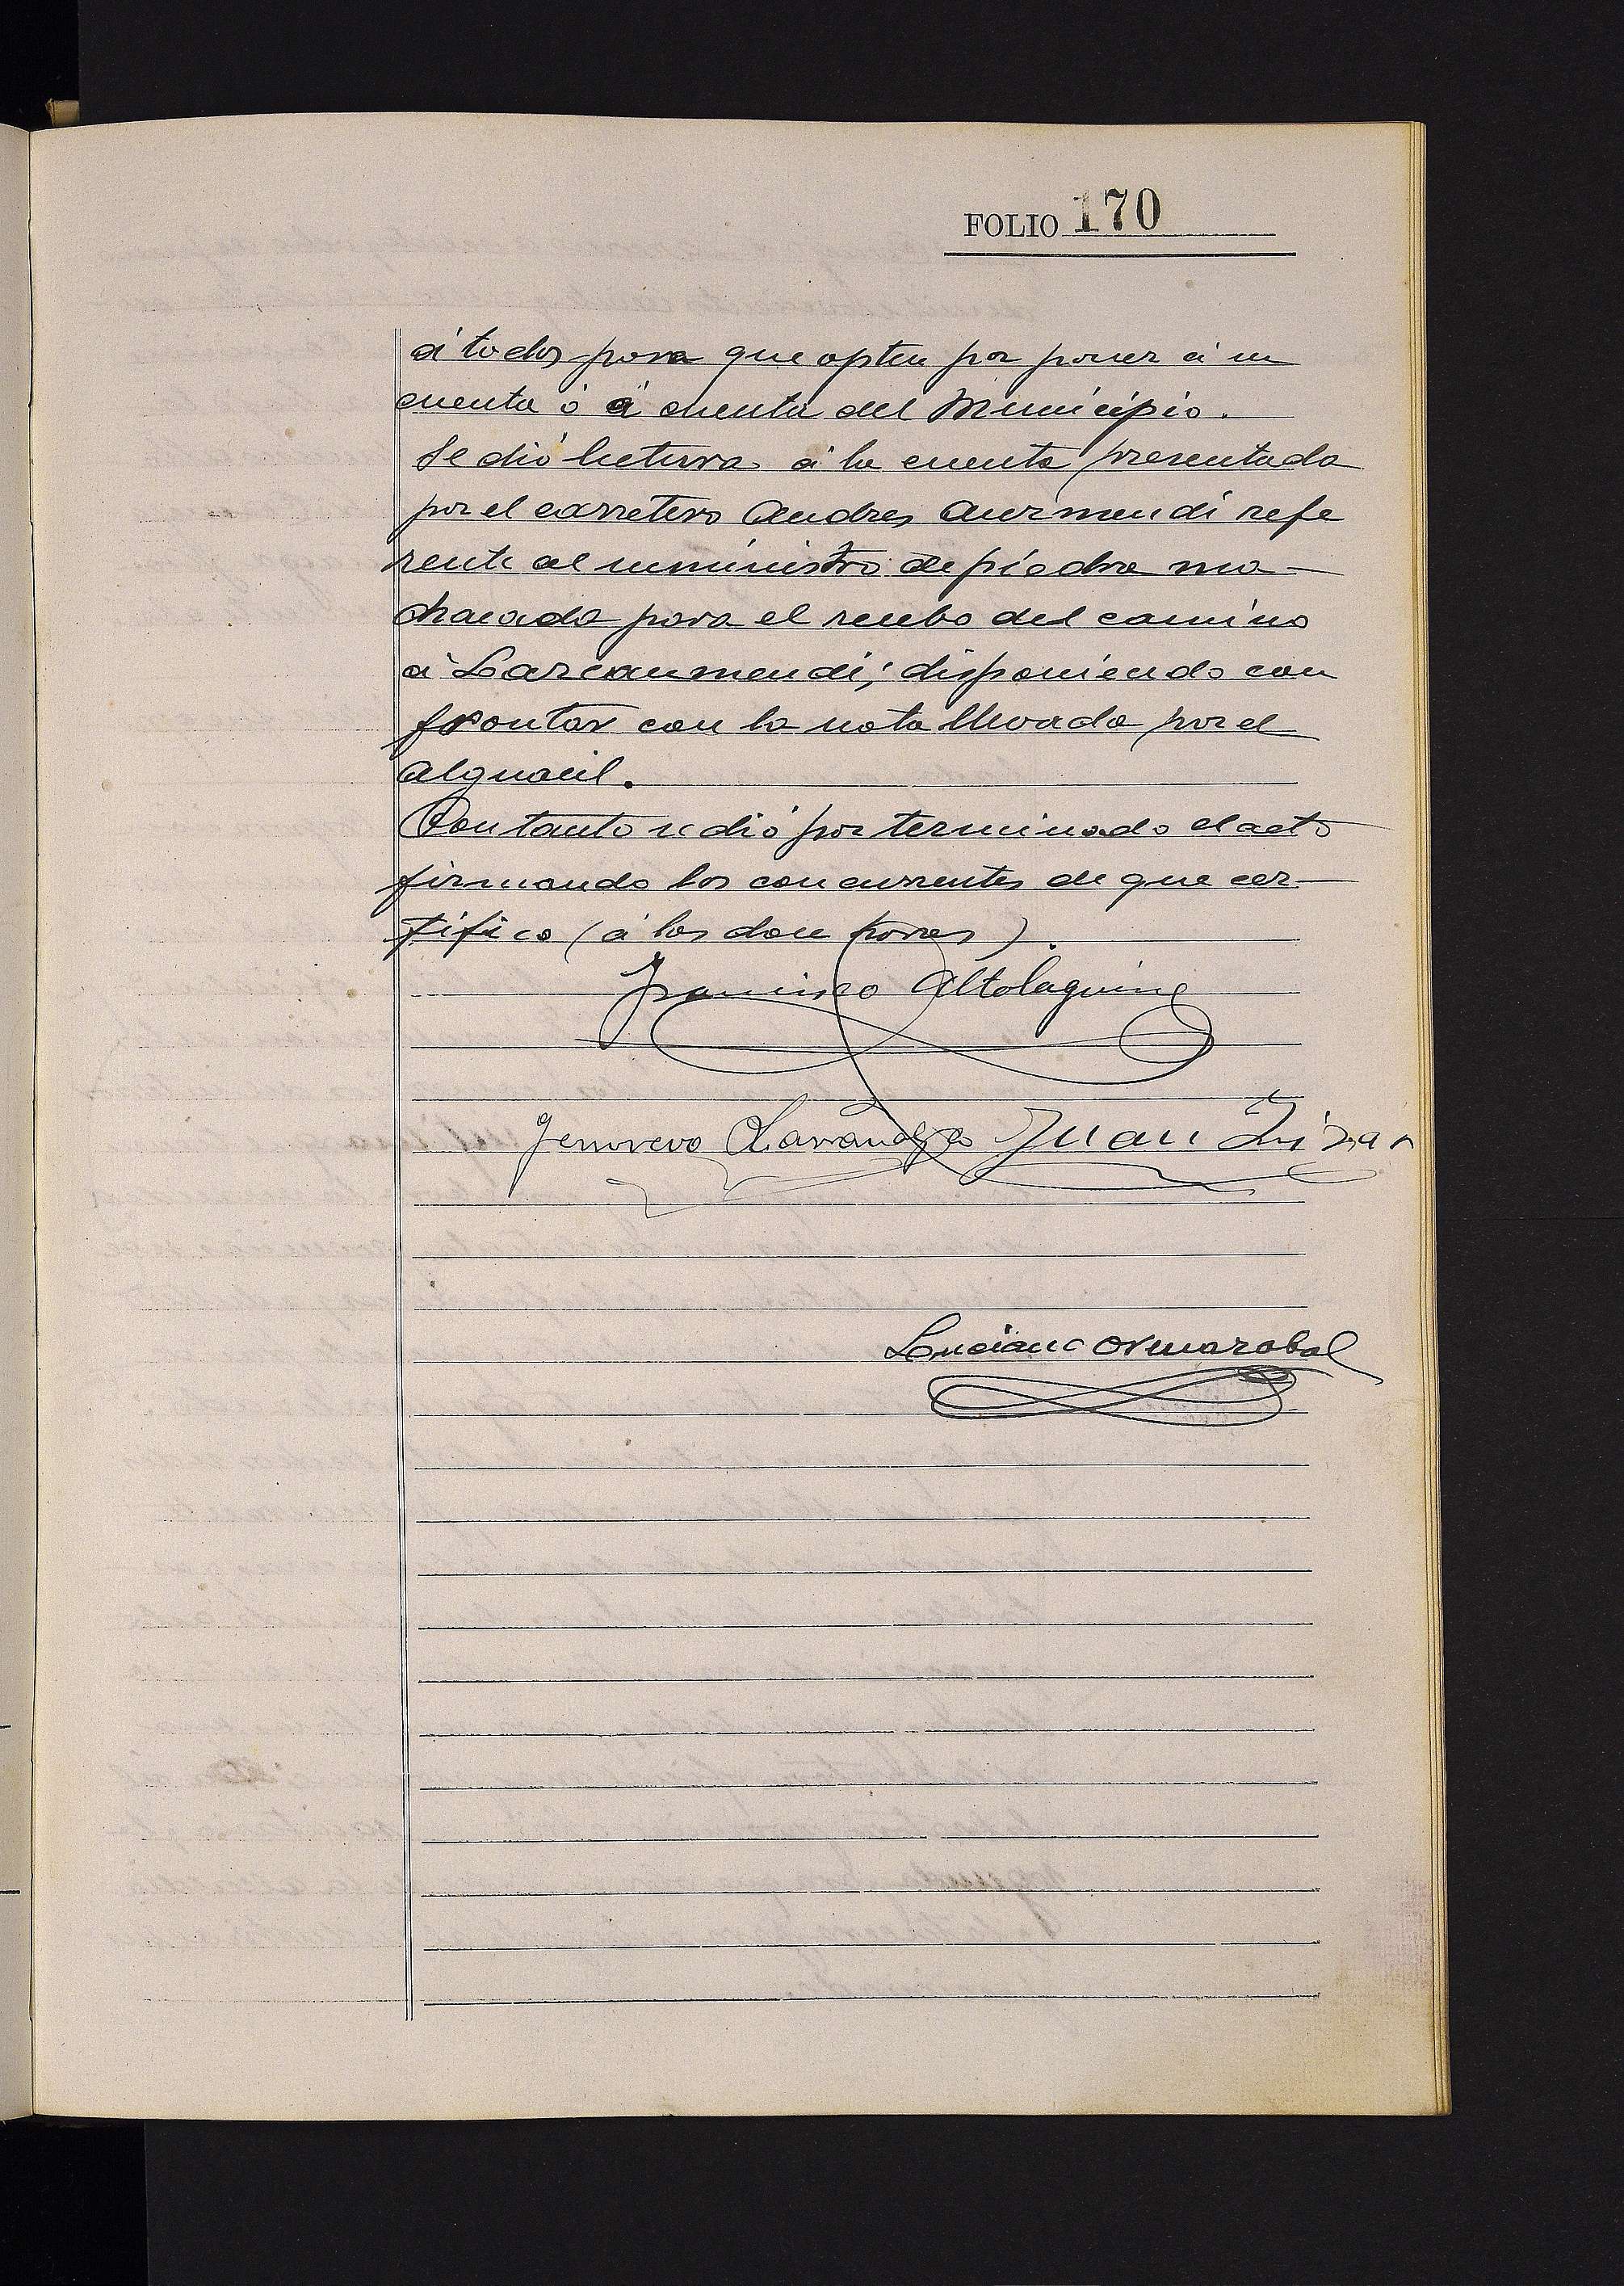 FOLIO 170
á todos para que opten por poner á su
cuenta ó á cuenta del Municipio.
Se dió letura á la cuenta presentada
por el carretero Andres Aurmendi refe
rente al suministro de piedra ma-
chacada para el recebo del camino
á Lazcanmendi; disponiendo con
frontar con la nota llevada por el
alguacil.
Con tanto se dió por terminado el acto
firmando los concurrentes de que cer-
tifico (á las doce horas).
Francisco Altolaguirre
Juan
Luciano Ormazabal